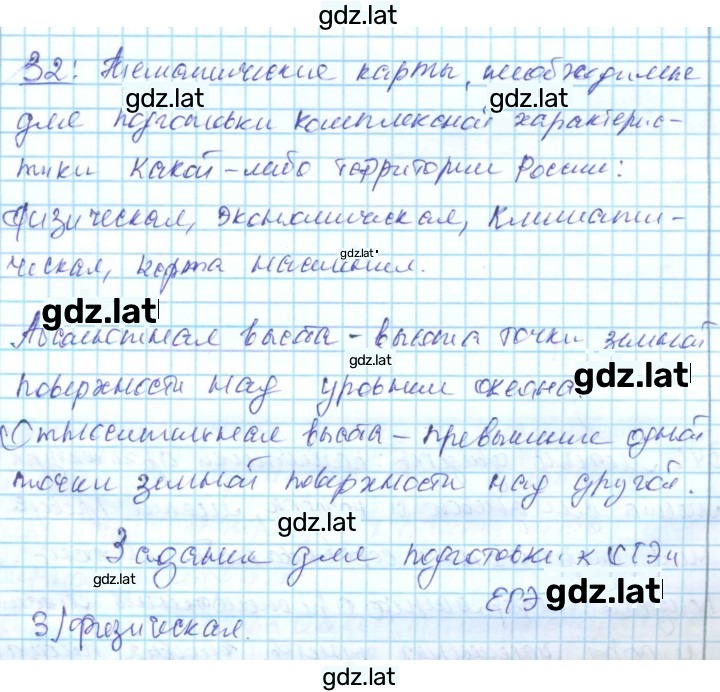 gdz.lat
32: Тематические карты, необходимые
gdz.lat gdz.lat
для подготовки комплексной характерис-
тики какой-либо территории России:
Физическая, экономическая, климати-
ческая, карта населения.
gdz.lat
gdz.lat
Абсолютная высота - высота точки земной
gdz.lat
поверхности над уровнем океана.
gdz.lat
Относительная высота - превышение одной
точки земной поверхности над другой.
gdz.lat
Задания для подготовки к ОГЭ и
gdz.lat
ЕГЭ gdz.lat
3) физическая.
gdz.lat